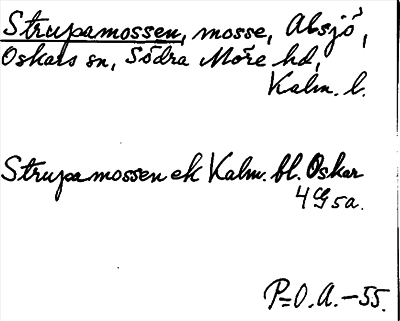 Strupamossen, mosse, Absjö,
Oskars sn, Södra Möre hd,
Kalm. l.
Strupamossen ek Kalm. bl. Oskar
4G5a.
P=O.A.-55.